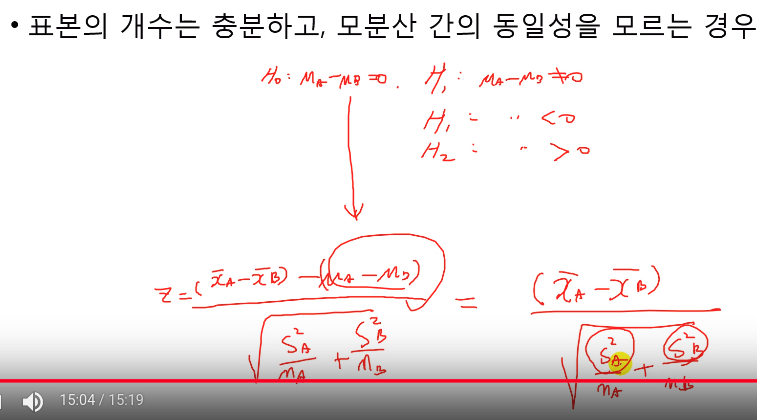 • 표본의 개수는 충분하고, 모분산 간의 동일성을 모르는 경우
H₀: μA-μB=0. H₁: μA-μB≠0
H₁: 〃 <0
H₂: 〃 >0
z = ((x̄A-x̄B) - (μA-μB)) / √(S²A/nA + S²B/nB) = (x̄A-x̄B) / √(S²A/nA + S²B/nB)
15:04 / 15:19